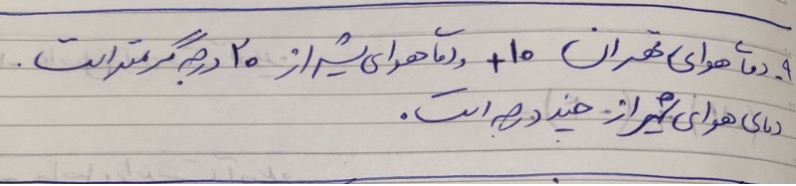 ۹. دمای هوای تهران ۱۰+ و دمای هوای شیراز ۲۰ درجه گرمتر است.
دمای هوای شیراز چند درجه است.